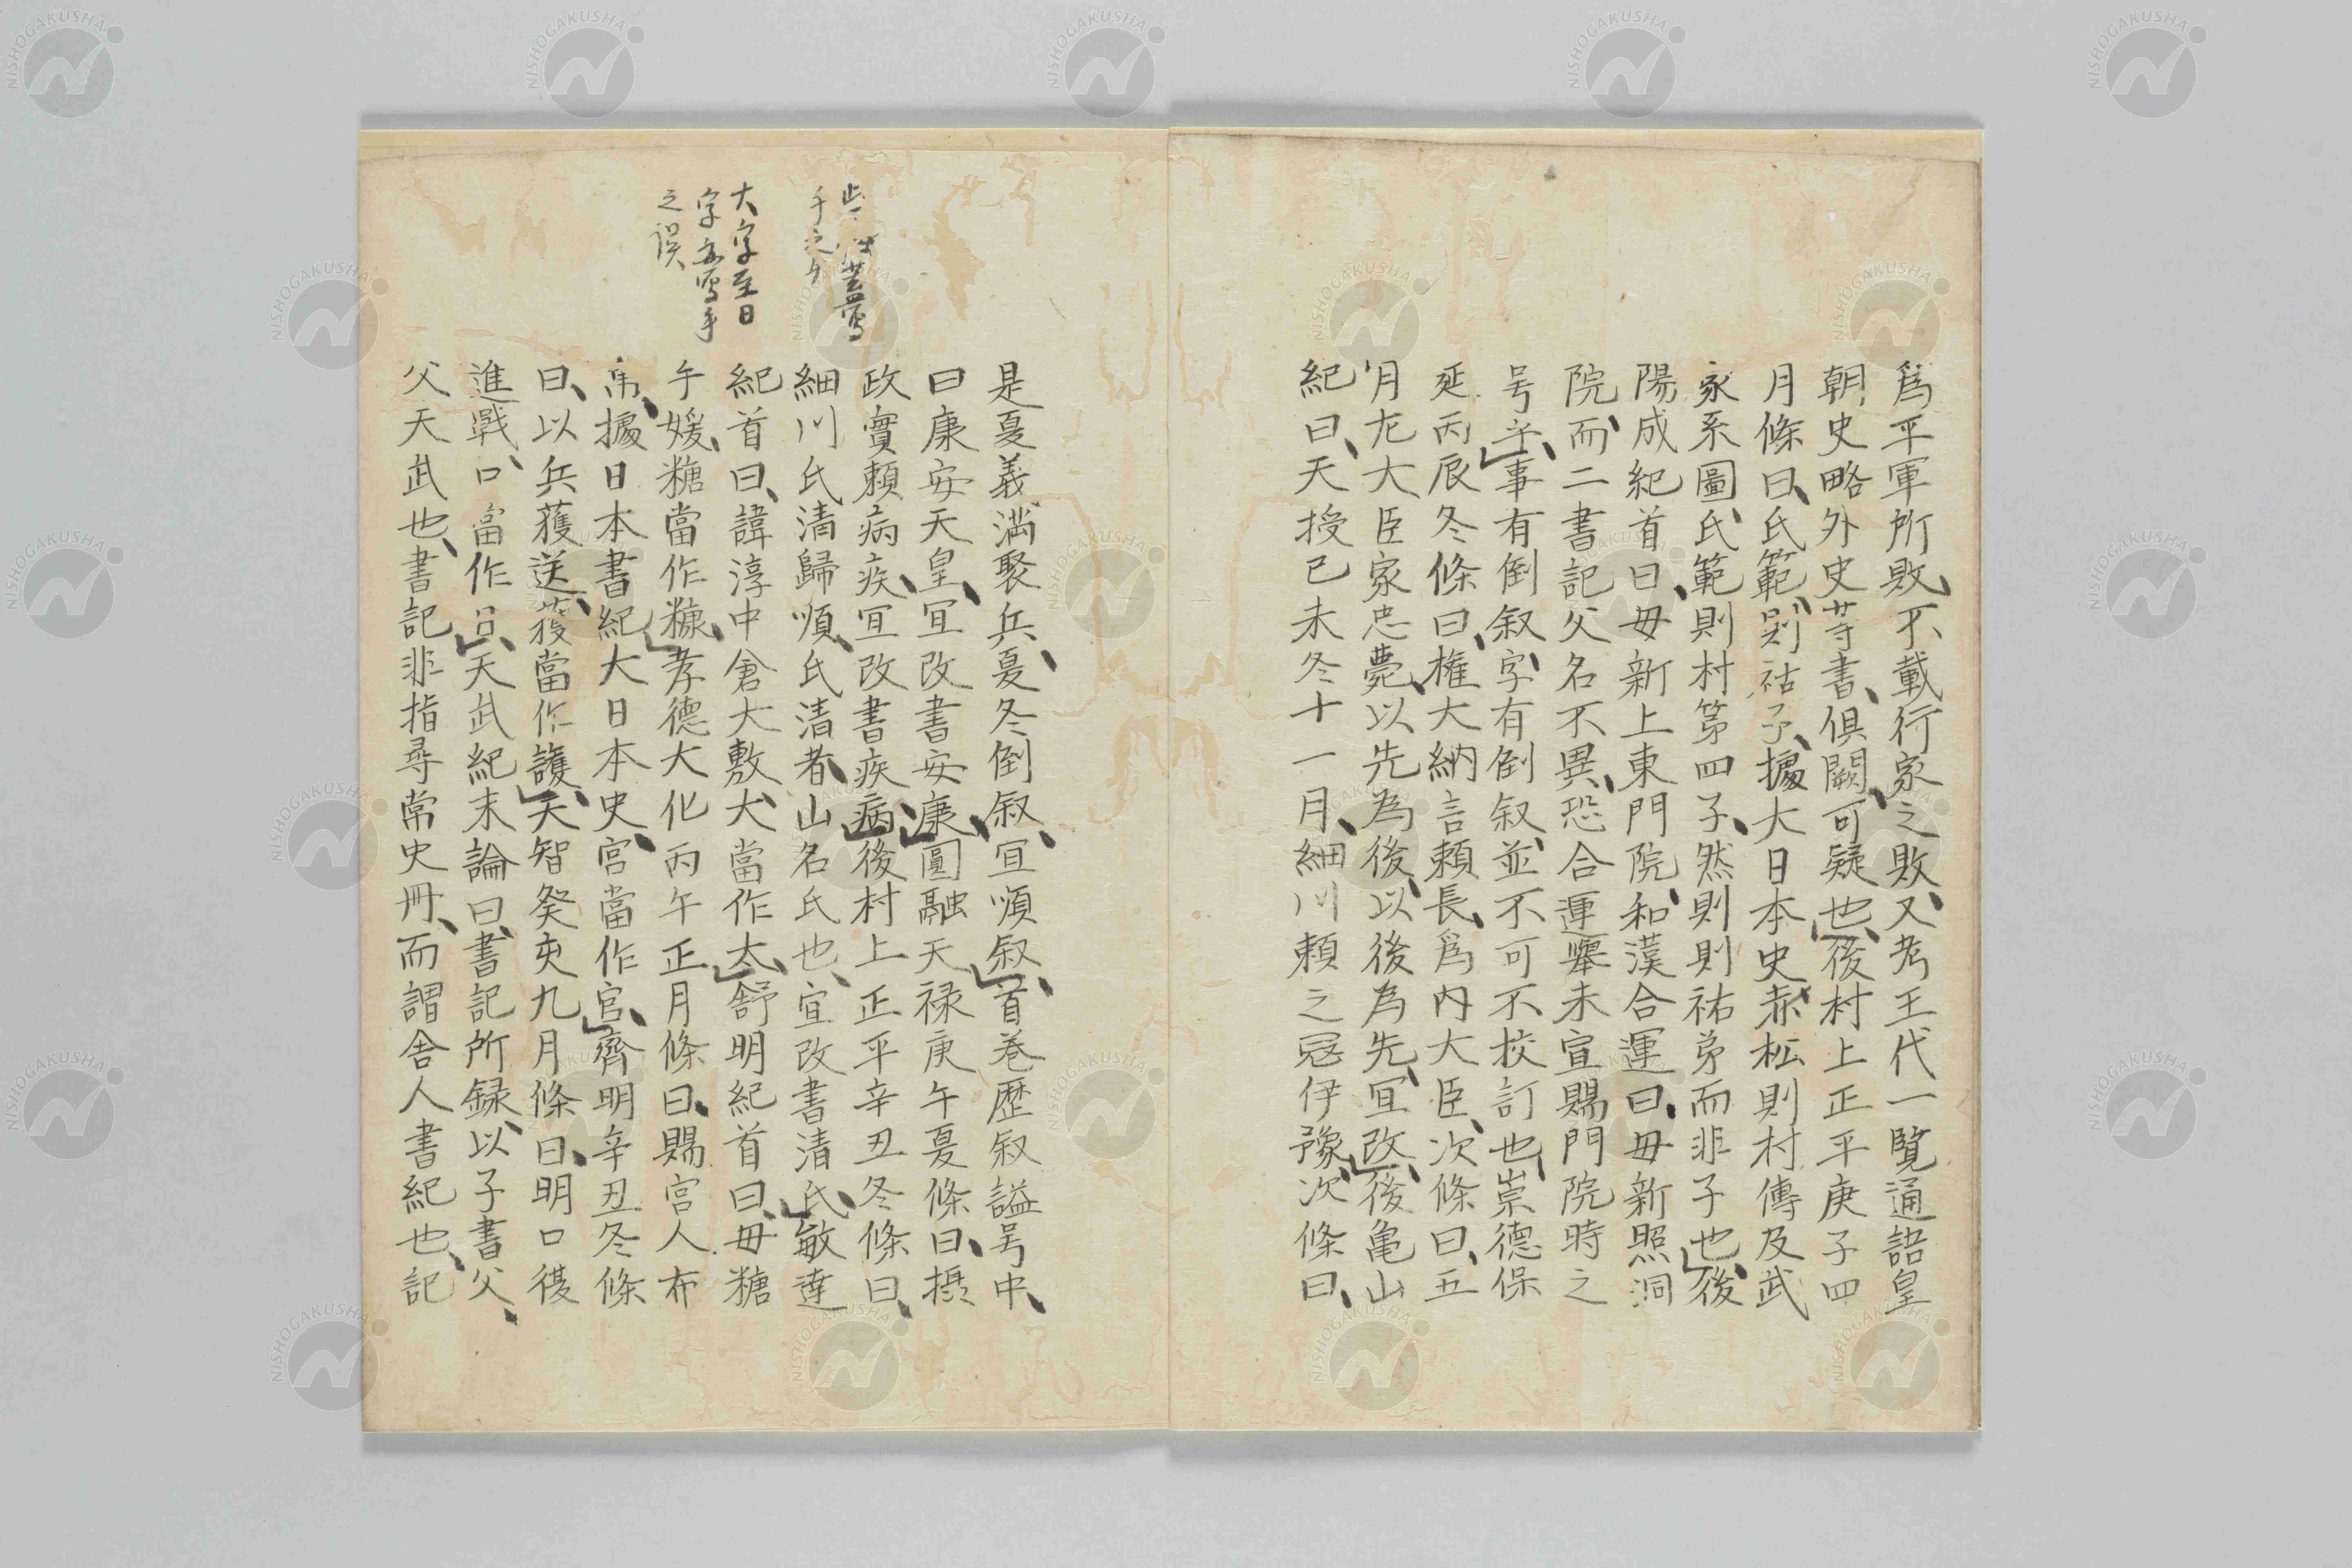 爲平軍所敗、不載行家之敗、又考王代一覧通語皇
朝史略外史等書、俱闕、可疑也、後村上正平庚子四
月條曰、氏範、則祐子、據大日本史赤松則村傳及武
家系圖、氏範則村第四子、然則則祐弟而非子也、後
陽成紀首曰、毋新上東門院、和漢合運曰、毋新照洞
院、而二書記父名不異、恐合運擧未宣賜門院時之
号乎、事有倒叙、字有倒叙、並不可不校訂也、崇德保
延丙辰冬條曰、権大納言頼長、爲内大臣、次條曰、五
月左大臣家忠薨、以先為後、以後為先、宜改、後亀山
紀曰、天授己未冬十一月、細川頼之冦伊豫、次條曰、
是夏義満聚兵、夏冬倒叙、宜順叙、首巻歴叙謚号中、
曰康安天皇、宜改書安康、圓融天禄庚午夏條曰、摂
政實頼病疾、宜改書疾病、後村上正平辛丑冬條曰、
細川氏清歸順、氏清者、山名氏也、宜改書清氏、敏達
紀首曰、諱渟中倉大敷、大當作太、舒明紀首曰、毋糖
手媛、糖當作糠、孝德大化丙午正月條曰、賜宮人布
帛、據日本書紀大日本史、宮當作官、齊明辛丑冬條
曰、以兵獲送、獲當作護、天智癸亥九月條曰、明口復
進戰、口當作日、天武紀末論曰、書記所録、以子書父、
父天武也、書記非指尋常史冊、而謂舎人書紀也、記
蓋寫
手之
大字至日
字亦寫手
之誤